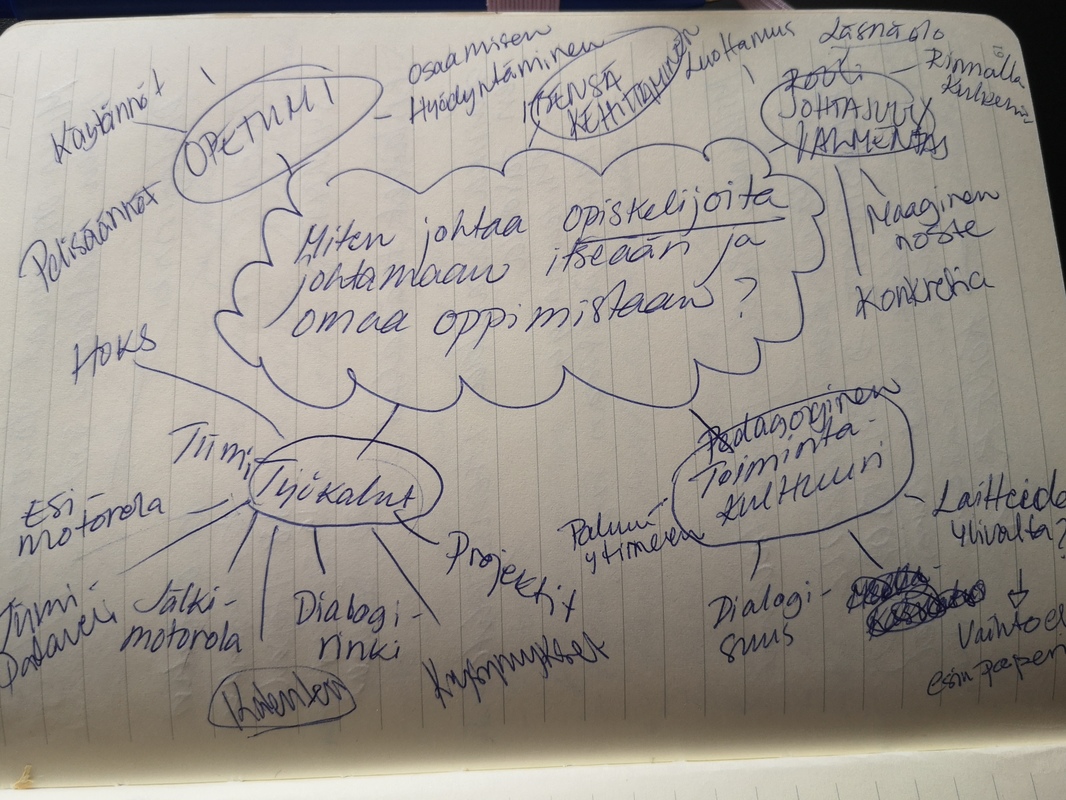 Käytännöt
OPETIIMI
Pelisäännöt
Osaamisen
Hyödyntäminen
ITSENSÄ
KEHITTÄMINEN
Luottamus
Läsnäolo
Rooli
JOHTAJUUS
VALMENNUS
Rinnalla
Kulkeva
Maaginen
noste
Konkretia
Miten johtaa opiskelijoita
johtamaan itseään ja
omaa oppimistaan?
HOKS
Tiimi
Työkalut
Esi
motorola
Jälki-
motorola
Dialogi-
rinki
Kalenteri
Kysymykset
Projektit
Pedagoginen
Toiminta-
kulttuuri
Paluu
ytimeen
Dialogi-
suus
Laitteiden
ylivalta?
Vaihtoeh
esim paperi